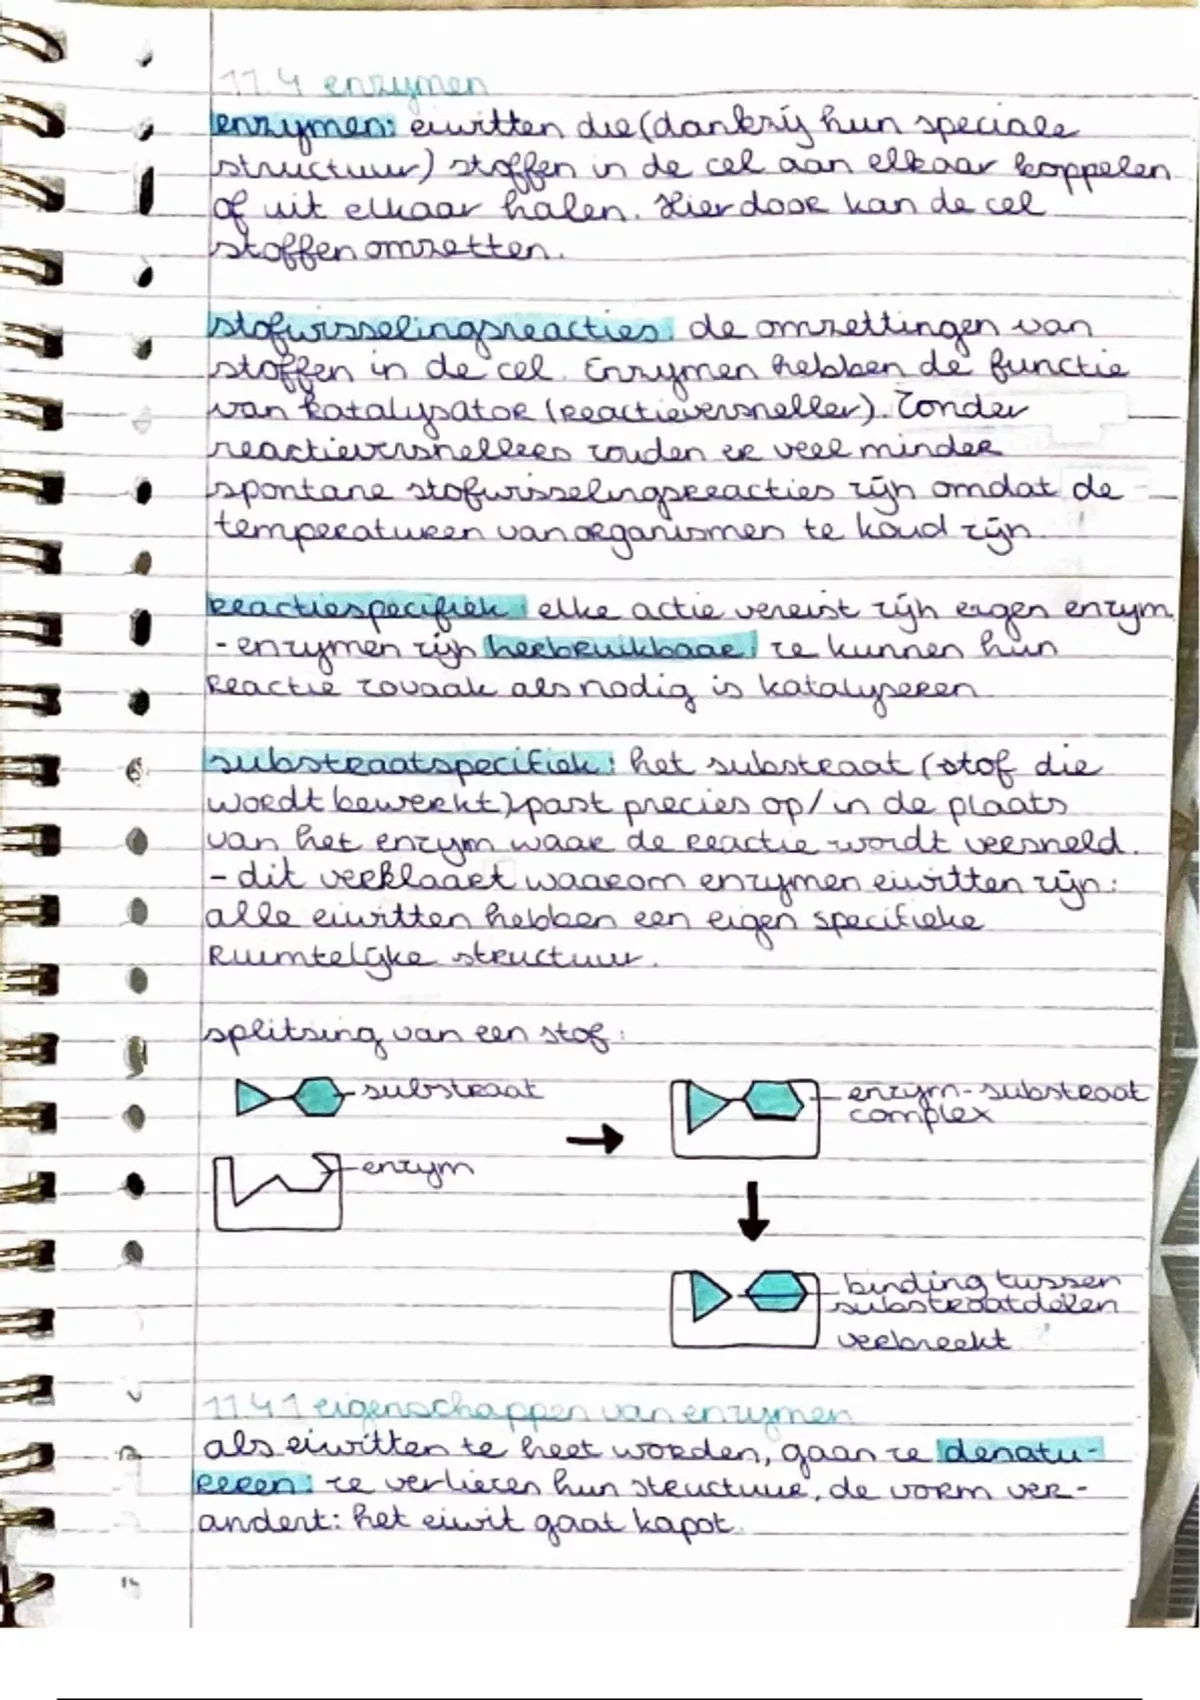 11.4 enzymen
enzymen: eiwitten die (dankzij hun speciale
structuur) stoffen in de cel aan elkaar koppelen
of uit elkaar halen. Hierdoor kan de cel
stoffen omzetten.
stofwisselingsreacties: de omzettingen van
stoffen in de cel. Enzymen hebben de functie
van katalysator (reactieversneller). Zonder
reactieversnellers zouden er veel minder
spontane stofwisselingsreacties zijn omdat de
temperaturen van organismen te koud zijn.
reactiespecifiek: elke actie vereist zijn eigen enzym
- enzymen zijn herbruikbaar: ze kunnen hun
reactie zovaak als nodig is katalyseren.
substraatspecifiek: het substraat (stof die
wordt bewerkt) past precies op/in de plaats
van het enzym waar de reactie wordt versneld.
- dit verklaart waarom enzymen eiwitten zijn:
alle eiwitten hebben een eigen specifieke
ruimtelijke structuur.
splitsing van een stof:
substraat
enzym-substraat
complex
enzym
binding tussen
substraatdelen
verbreekt
11.4.1 eigenschappen van enzymen
als eiwitten te heet worden, gaan ze denatu-
reren: ze verliezen hun structuur, de vorm ver-
andert: het eiwit gaat kapot.